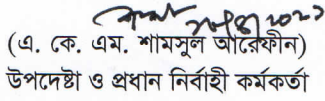 (এ. কে. এম. শামসুল আরেফীন)
উপদেষ্টা ও প্রধান নির্বাহী কর্মকর্তা